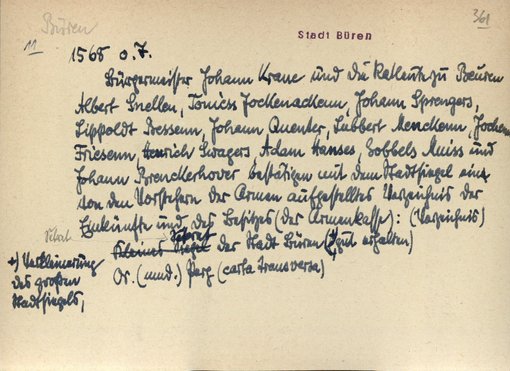 Büren
361
Stadt Büren
11
1568 o. T.
Bürgermeister Johann Krane und die Ratleute zu Bueren
Albert Snellen, Tonicss Jockenackenn, Johann Sprengers,
Lippoldt Bessenn, Johann Quenter, Lubbert Menckenn, Jochem
Friesenn, Henrich Swagers, Adam Hanses, Gobbels Muiss und
Johann Brenckerhover bestätigen mit dem Stadtsiegel ein
von den Vorstehern der Armen aufgestelltes Verzeichnis der
Einkünfte und des Besitzes (der Armenkasse): (Verzeichnis)
Sekret
Kleines Siegel der Stadt Büren (gut erhalten)
Or. (mnd.) Perg (carta transversa)
+) Verkleinerung
des großen
Stadtsiegels,